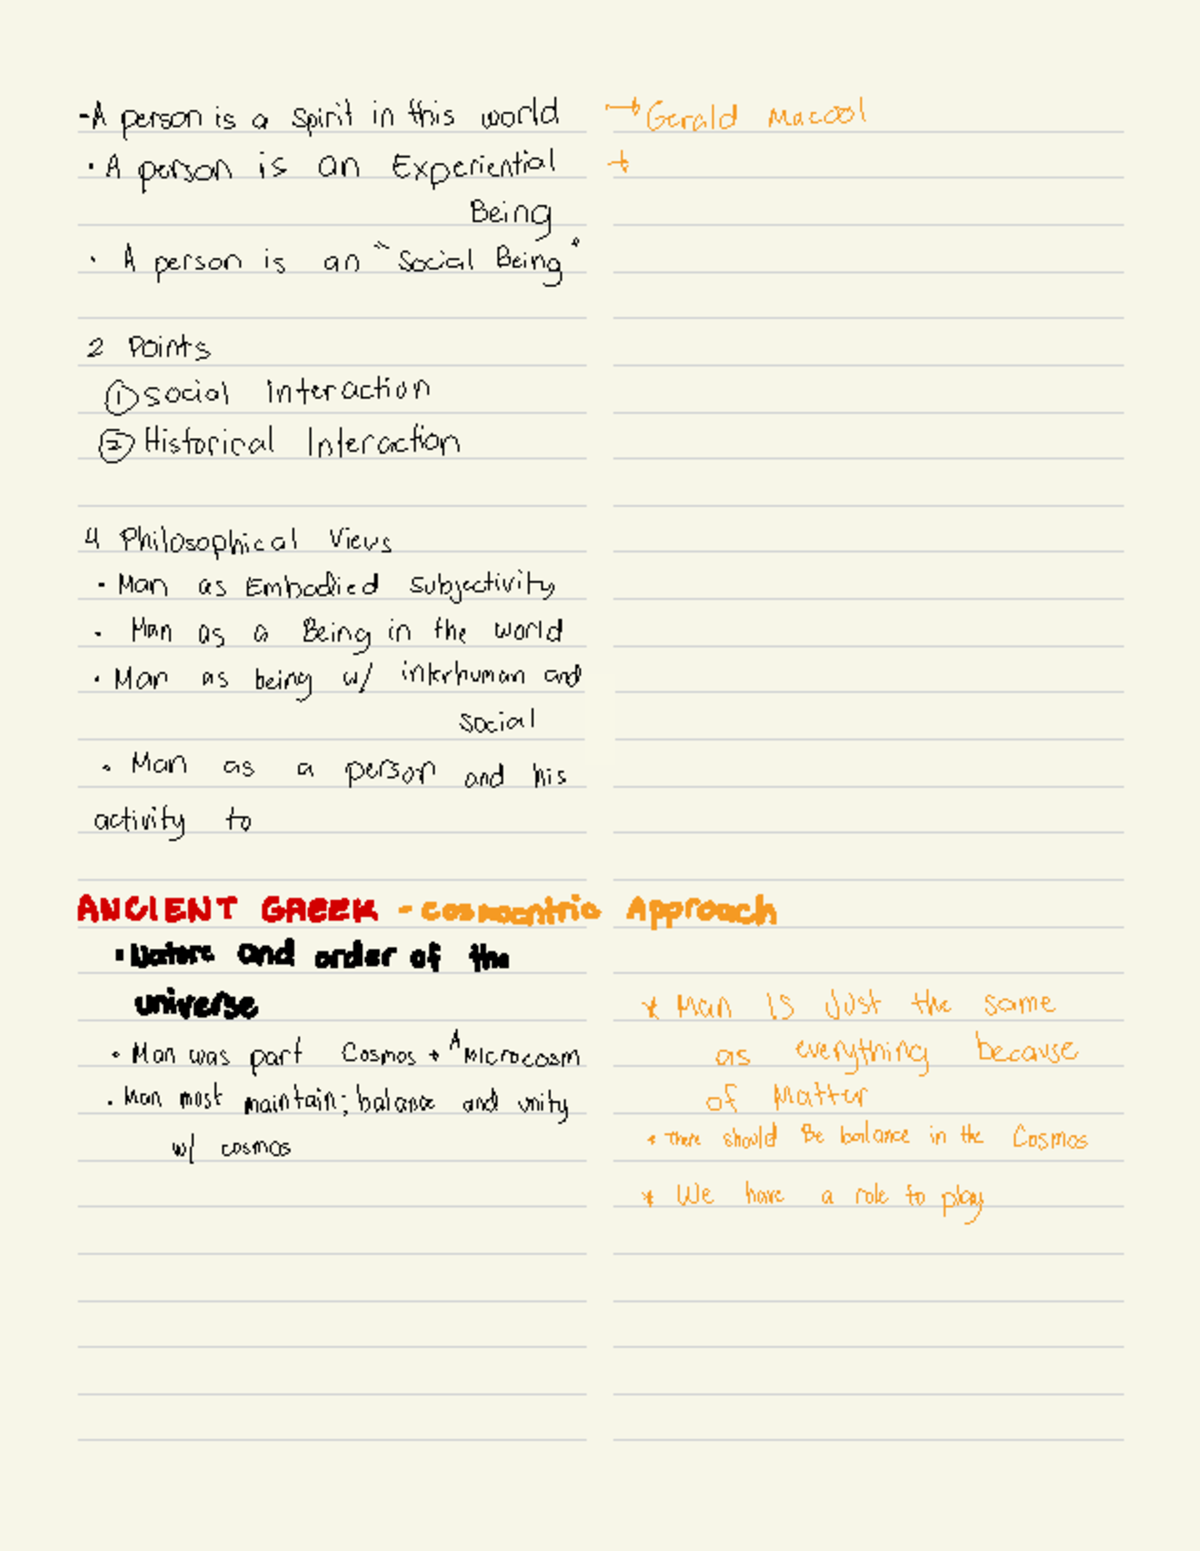 -A person is a spirit in this world → Gerald Macool
• A person is an Experiential →
Being
• A person is an "Social Being"
2 Points
① Social Interaction
② Historical Interaction
4 Philosophical Views
• Man as Embodied subjectivity
• Man as a Being in the world
• Man as being w/ interhuman and
social
• Man as a person and his
activity to
ANCIENT GREEK - cosmocentric Approach
• Nature and order of the
universe
• Man was part Cosmos → A Microcosm
• Man most maintain; balance and unity
w/ cosmos
* Man is Just the same
as everything because
of Matter
* There should Be balance in the Cosmos
* We have a role to play